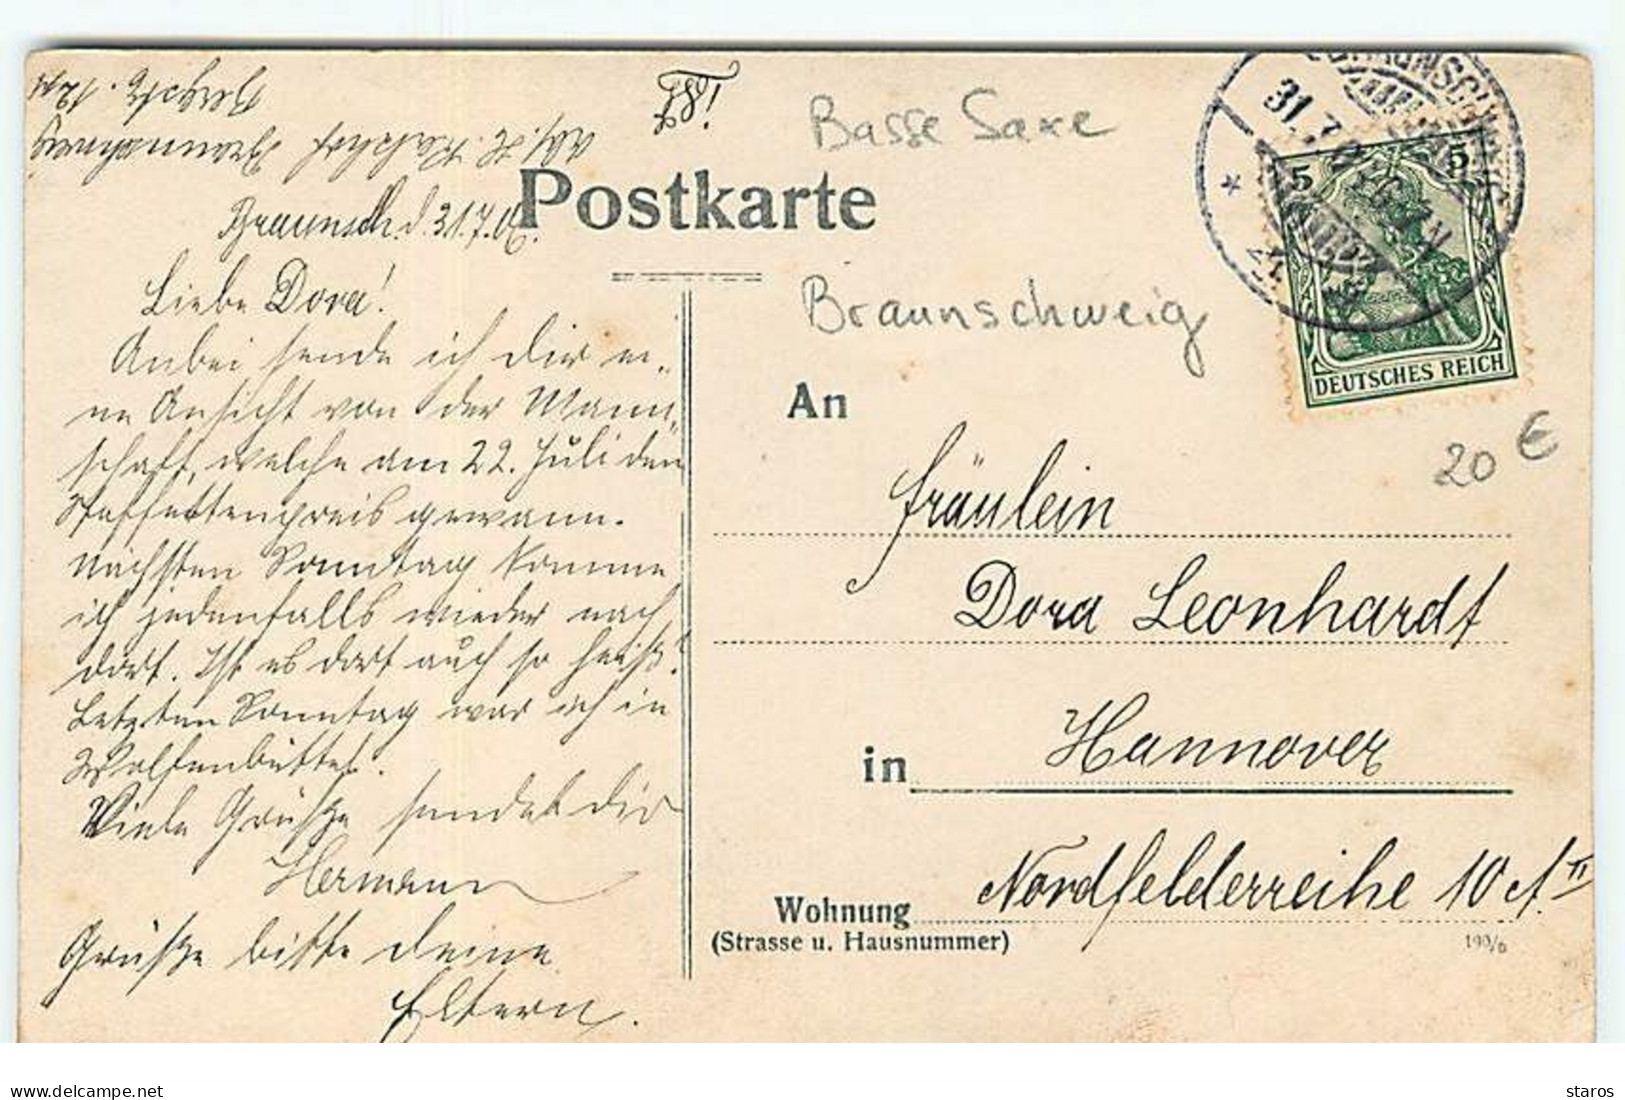 Postkarte
Basse Saxe
Braunschweig
Braunsch. d. 31.7.
Liebe Dora!
Anbei sende ich Dir ei„
ne Ansicht von der Mann„
schaft, welche am 22. Juli den
Staffettenpreis gewann.
Nächsten Sonntag komme
ich jedenfalls wieder nach
dort. Ist es dort auch so heiß?
Letzten Sonntag war ich in
Wolfenbüttel.
Viele Grüße sendet Dir
Hermann
Grüße bitte deine
Eltern.
Abs. H.
Braunschweig
31. 7.
5 5
DEUTSCHES REICH
20 €
An
Fräulein
Dora Leonhardt
in Hannover
Wohnung Nordfelderreihe 10 II
(Strasse u. Hausnummer)
190/6
www.delcampe.net
staros